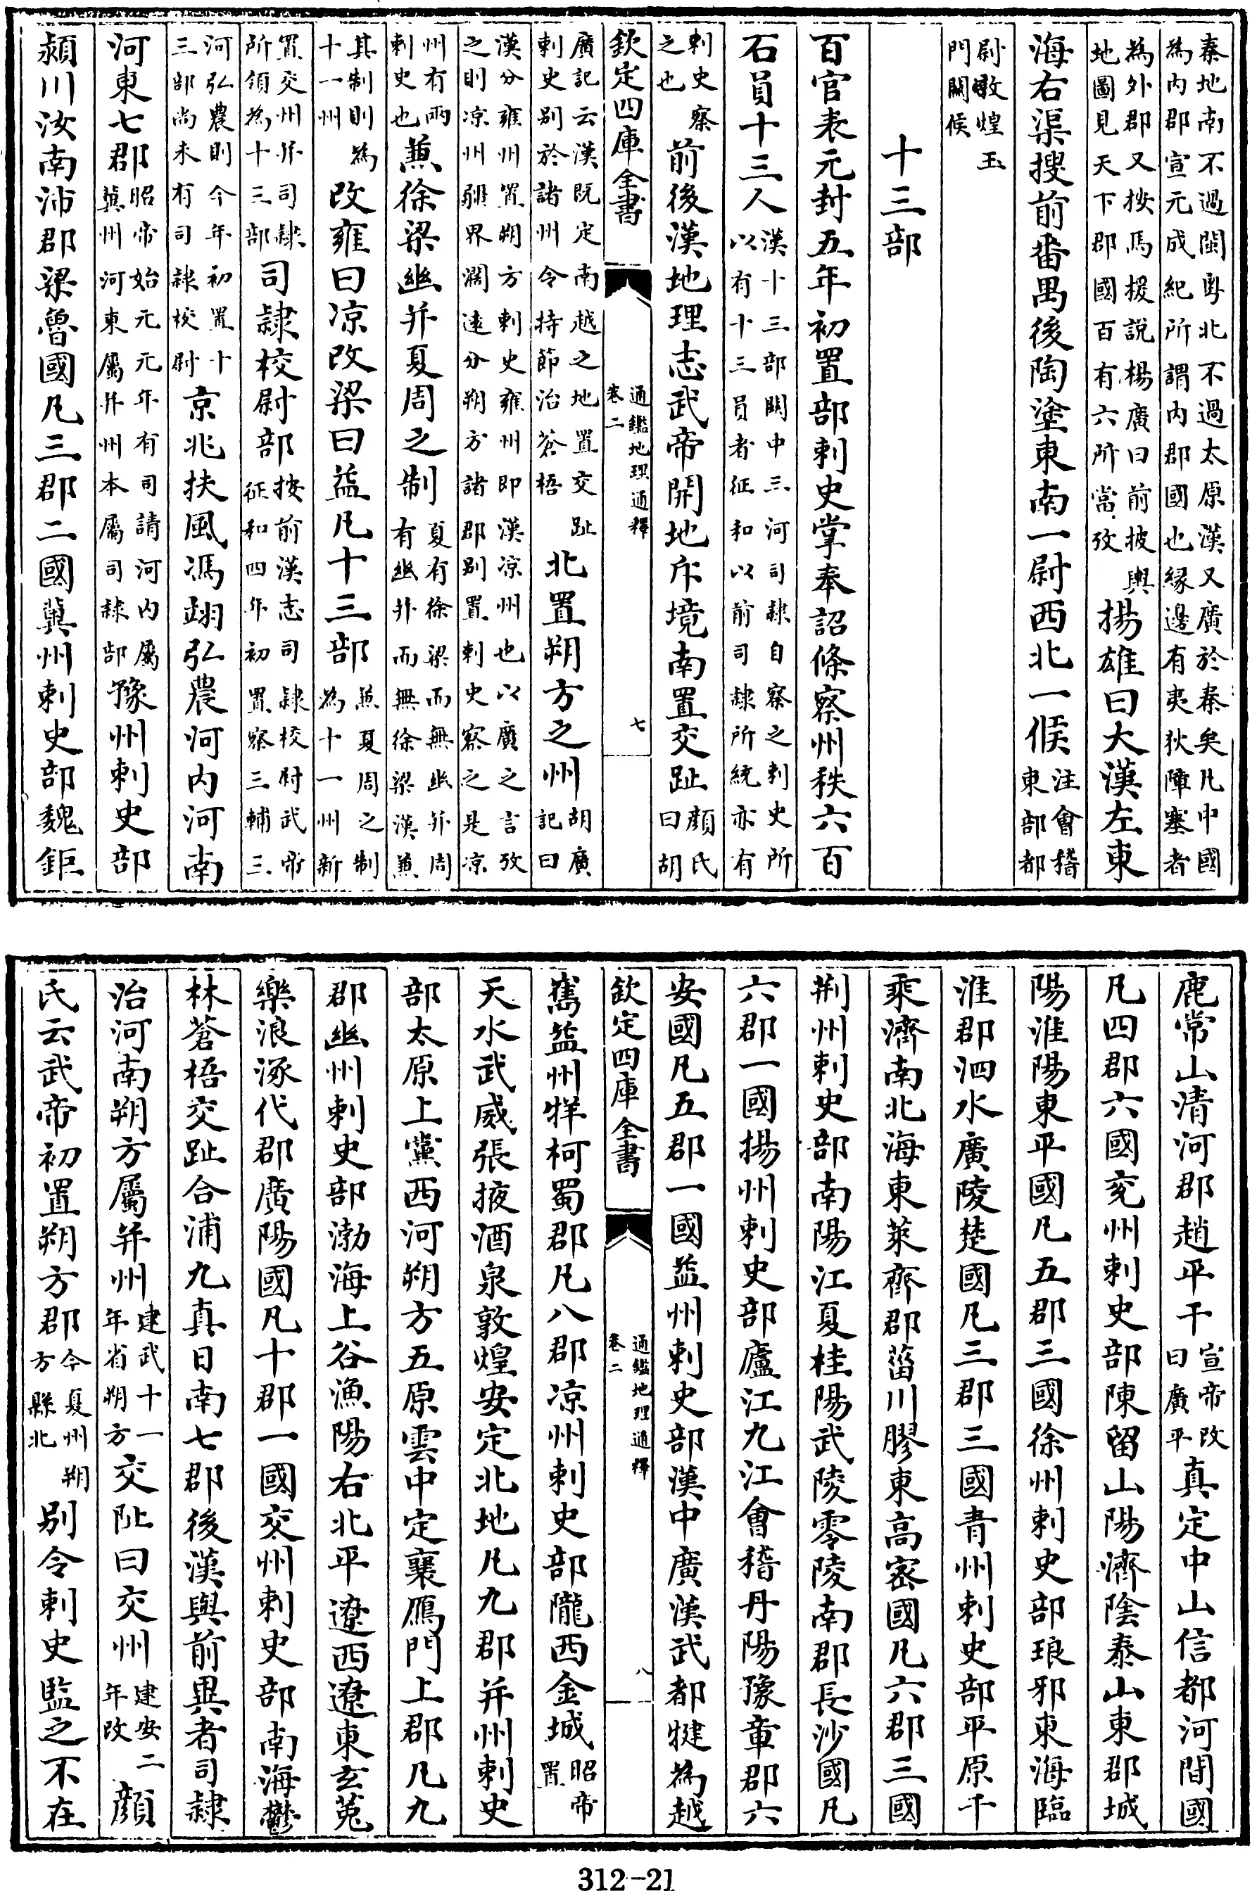 秦地南不過閩粤北不過太原漢又廣於秦矣凡中國
為内郡宣元成紀所謂内郡國也緣邊有夷狄障塞者
為外郡又按馬援說楊廣曰前披輿
地圖見天下郡國百有六所當攷
揚雄曰大漢左東
海右渠搜前番禺後陶塗東南一尉西北一候
注會稽
東部都
尉敦煌玉
門關候
十三部
百官表元封五年初置部刺史掌奉詔條察州秩六百
石員十三人
漢十三部關中三河司隸自察之刺史所
以有十三員者征和以前司隸所統亦有
刺史察
之也
前後漢地理志武帝開地斥境南置交趾
顔氏
曰胡
欽定四庫全書
通鑑地理通釋
卷二
七
廣記云漢既定南越之地置交趾
刺史别於諸州令持節治蒼梧
北置朔方之州
胡廣
記曰
漢分雍州置朔方刺史雍州即漢凉州也以廣之言攷
之則凉州疆界濶遠分朔方諸郡别置刺史察之是凉
州有兩
刺史也
兼徐梁幽并夏周之制
夏有徐梁而無幽并周
有幽并而無徐梁漢兼
其制則為
十一州
改雍曰凉改梁曰益凡十三部
兼夏周之制
為十一州新
置交州并司隸
所領為十三部
司隸校尉部
按前漢志司隸校尉武帝
征和四年初置察三輔三
河弘農則今年初置十
三部尚未有司隸校尉
京兆扶風馮翊弘農河内河南
河東七郡
昭帝始元元年有司請河内屬
冀州河東屬并州本屬司隸部
豫州刺史部
潁川汝南沛郡梁魯國凡三郡二國冀州刺史部魏鉅
鹿常山清河郡趙平干
宣帝改
曰廣平
真定中山信都河間國
凡四郡六國兖州刺史部陳留山陽濟陰泰山東郡城
陽淮陽東平國凡五郡三國徐州刺史部琅邪東海臨
淮郡泗水廣陵楚國凡三郡三國青州刺史部平原千
乘濟南北海東萊齊郡菑川膠東高密國凡六郡三國
荆州刺史部南陽江夏桂陽武陵零陵南郡長沙國凡
六郡一國揚州刺史部廬江九江會稽丹陽豫章郡六
安國凡五郡一國益州刺史部漢中廣漢武都犍為越
欽定四庫全書
通鑑地理通釋
卷二
八
嶲益州牂柯蜀郡凡八郡凉州刺史部隴西金城
昭帝
置
天水武威張掖酒泉敦煌安定北地凡九郡并州刺史
部太原上黨西河朔方五原雲中定襄鴈門上郡凡九
郡幽州刺史部渤海上谷漁陽右北平遼西遼東玄菟
樂浪涿代郡廣陽國凡十郡一國交州刺史部南海鬱
林蒼梧交趾合浦九真日南七郡後漢與前異者司隸
治河南朔方屬并州
建武十一
年省朔方
交阯曰交州
建安二
年改
顔
氏云武帝初置朔方郡
今夏州朔
方縣北
别令刺史監之不在
312-21